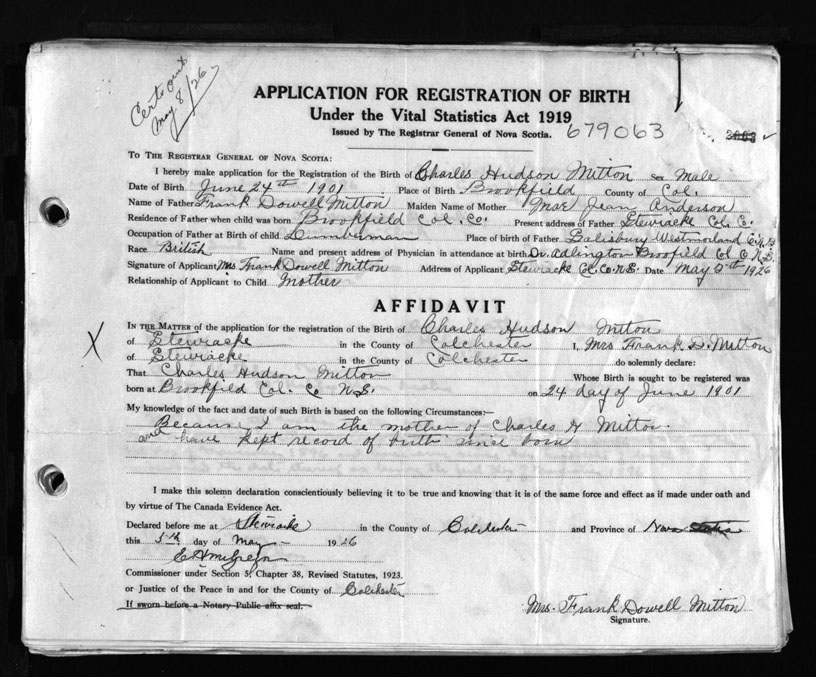 Certs out
May 8/26
APPLICATION FOR REGISTRATION OF BIRTH
Under the Vital Statistics Act 1919
Issued by The Registrar General of Nova Scotia. 679063
TO THE REGISTRAR GENERAL OF NOVA SCOTIA:
I hereby make application for the Registration of the Birth of Charles Hudson Mitton sex Male
Date of Birth June 24th 1901 Place of Birth Brookfield County of Col.
Name of Father Frank Dowell Mitton Maiden Name of Mother Mae Jean Anderson
Residence of Father when child was born Brookfield Col. Co. Present address of Father Stewiacke Col. C.
Occupation of Father at Birth of child Lumberman Place of birth of Father Salisbury Westmorland Co. N.B
Race British Name and present address of Physician in attendance at birth Dr. Adlington Broofield Col C. N.S.
Signature of Applicant Mrs Frank Dowell Mitton Address of Applicant Stewiacke Col. Co. N.S. Date May 5th 1926
Relationship of Applicant to Child Mother
AFFIDAVIT
IN THE MATTER of the application for the registration of the Birth of Charles Hudson Mitton
of Stewiacke in the County of Colchester I, Mrs Frank D. Mitton
of Stewiacke in the County of Colchester do solemnly declare:
That Charles Hudson Mitton Whose Birth is sought to be registered was
born at Brookfield Col. Co N.S. on 24 day of June 1901
My knowledge of the fact and date of such Birth is based on the following Circumstances:—
Because I am the mother of Charles H Mitton.
and have kept record of birth since born
I make this solemn declaration conscientiously believing it to be true and knowing that it is of the same force and effect as if made under oath and
by virtue of The Canada Evidence Act.
Declared before me at Stewiacke in the County of Colchester and Province of Nova Scotia
this 5th day of May 1926
Commissioner under Section 5, Chapter 38, Revised Statutes, 1923.
or Justice of the Peace in and for the County of Colchester
If sworn before a Notary Public affix seal.
Mrs. Frank Dowell Mitton
Signature.